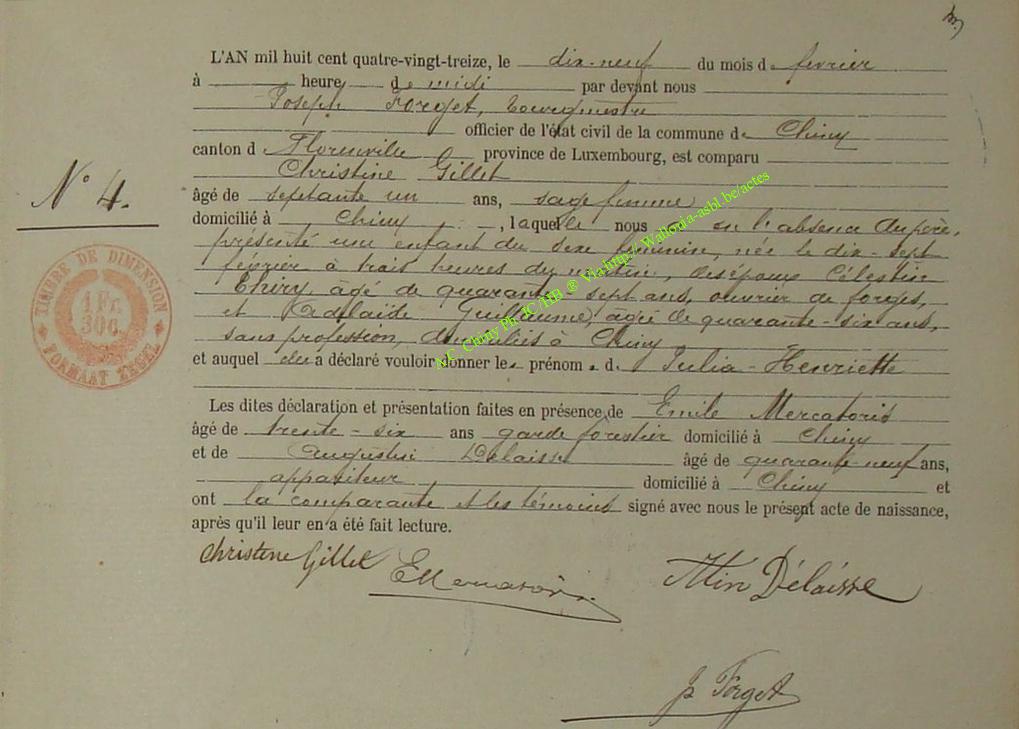 L'AN mil huit cent quatre-vingt-treize, le dix-neuf du mois de février
à heure de midi par devant nous
Joseph Forget, bourgmestre
officier de l'état civil de la commune de Chiny
canton d Florenville province de Luxembourg, est comparu
Christine Gillet
N° 4.
âgé de septante un ans, sage femme
domicilié à Chiny, laquelle nous a en l'absence du père,
présenté un enfant du sexe féminin, née le dix-sept
février à trois heures du matin, des époux Célestin
Thiry, âgé de quarante-sept ans, ouvrier de forges,
et Adélaïde Guillaume, agée de quarante-six ans,
sans profession, domiciliés à Chiny
et auquel elle a déclaré vouloir donner les prénoms de Julia-Henriette
TIMBRE DE DIMENSION
1 Fr.
30c.
FORMAAT ZEGEL
Les dites déclaration et présentation faites en présence de Emile Mercatoris
âgé de trente-six ans garde forestier domicilié à Chiny
et de Augustin Delaisse âgé de quarante-neuf ans,
appariteur domicilié à Chiny et
ont la comparante et les témoins signé avec nous le présent acte de naissance,
après qu'il leur en a été fait lecture.
Christine Gillet EMercatoris Atin Délaisse
J Forget
AC Chiny Ph JC/HB ® Via http://Wallonia-asbl.be/actes